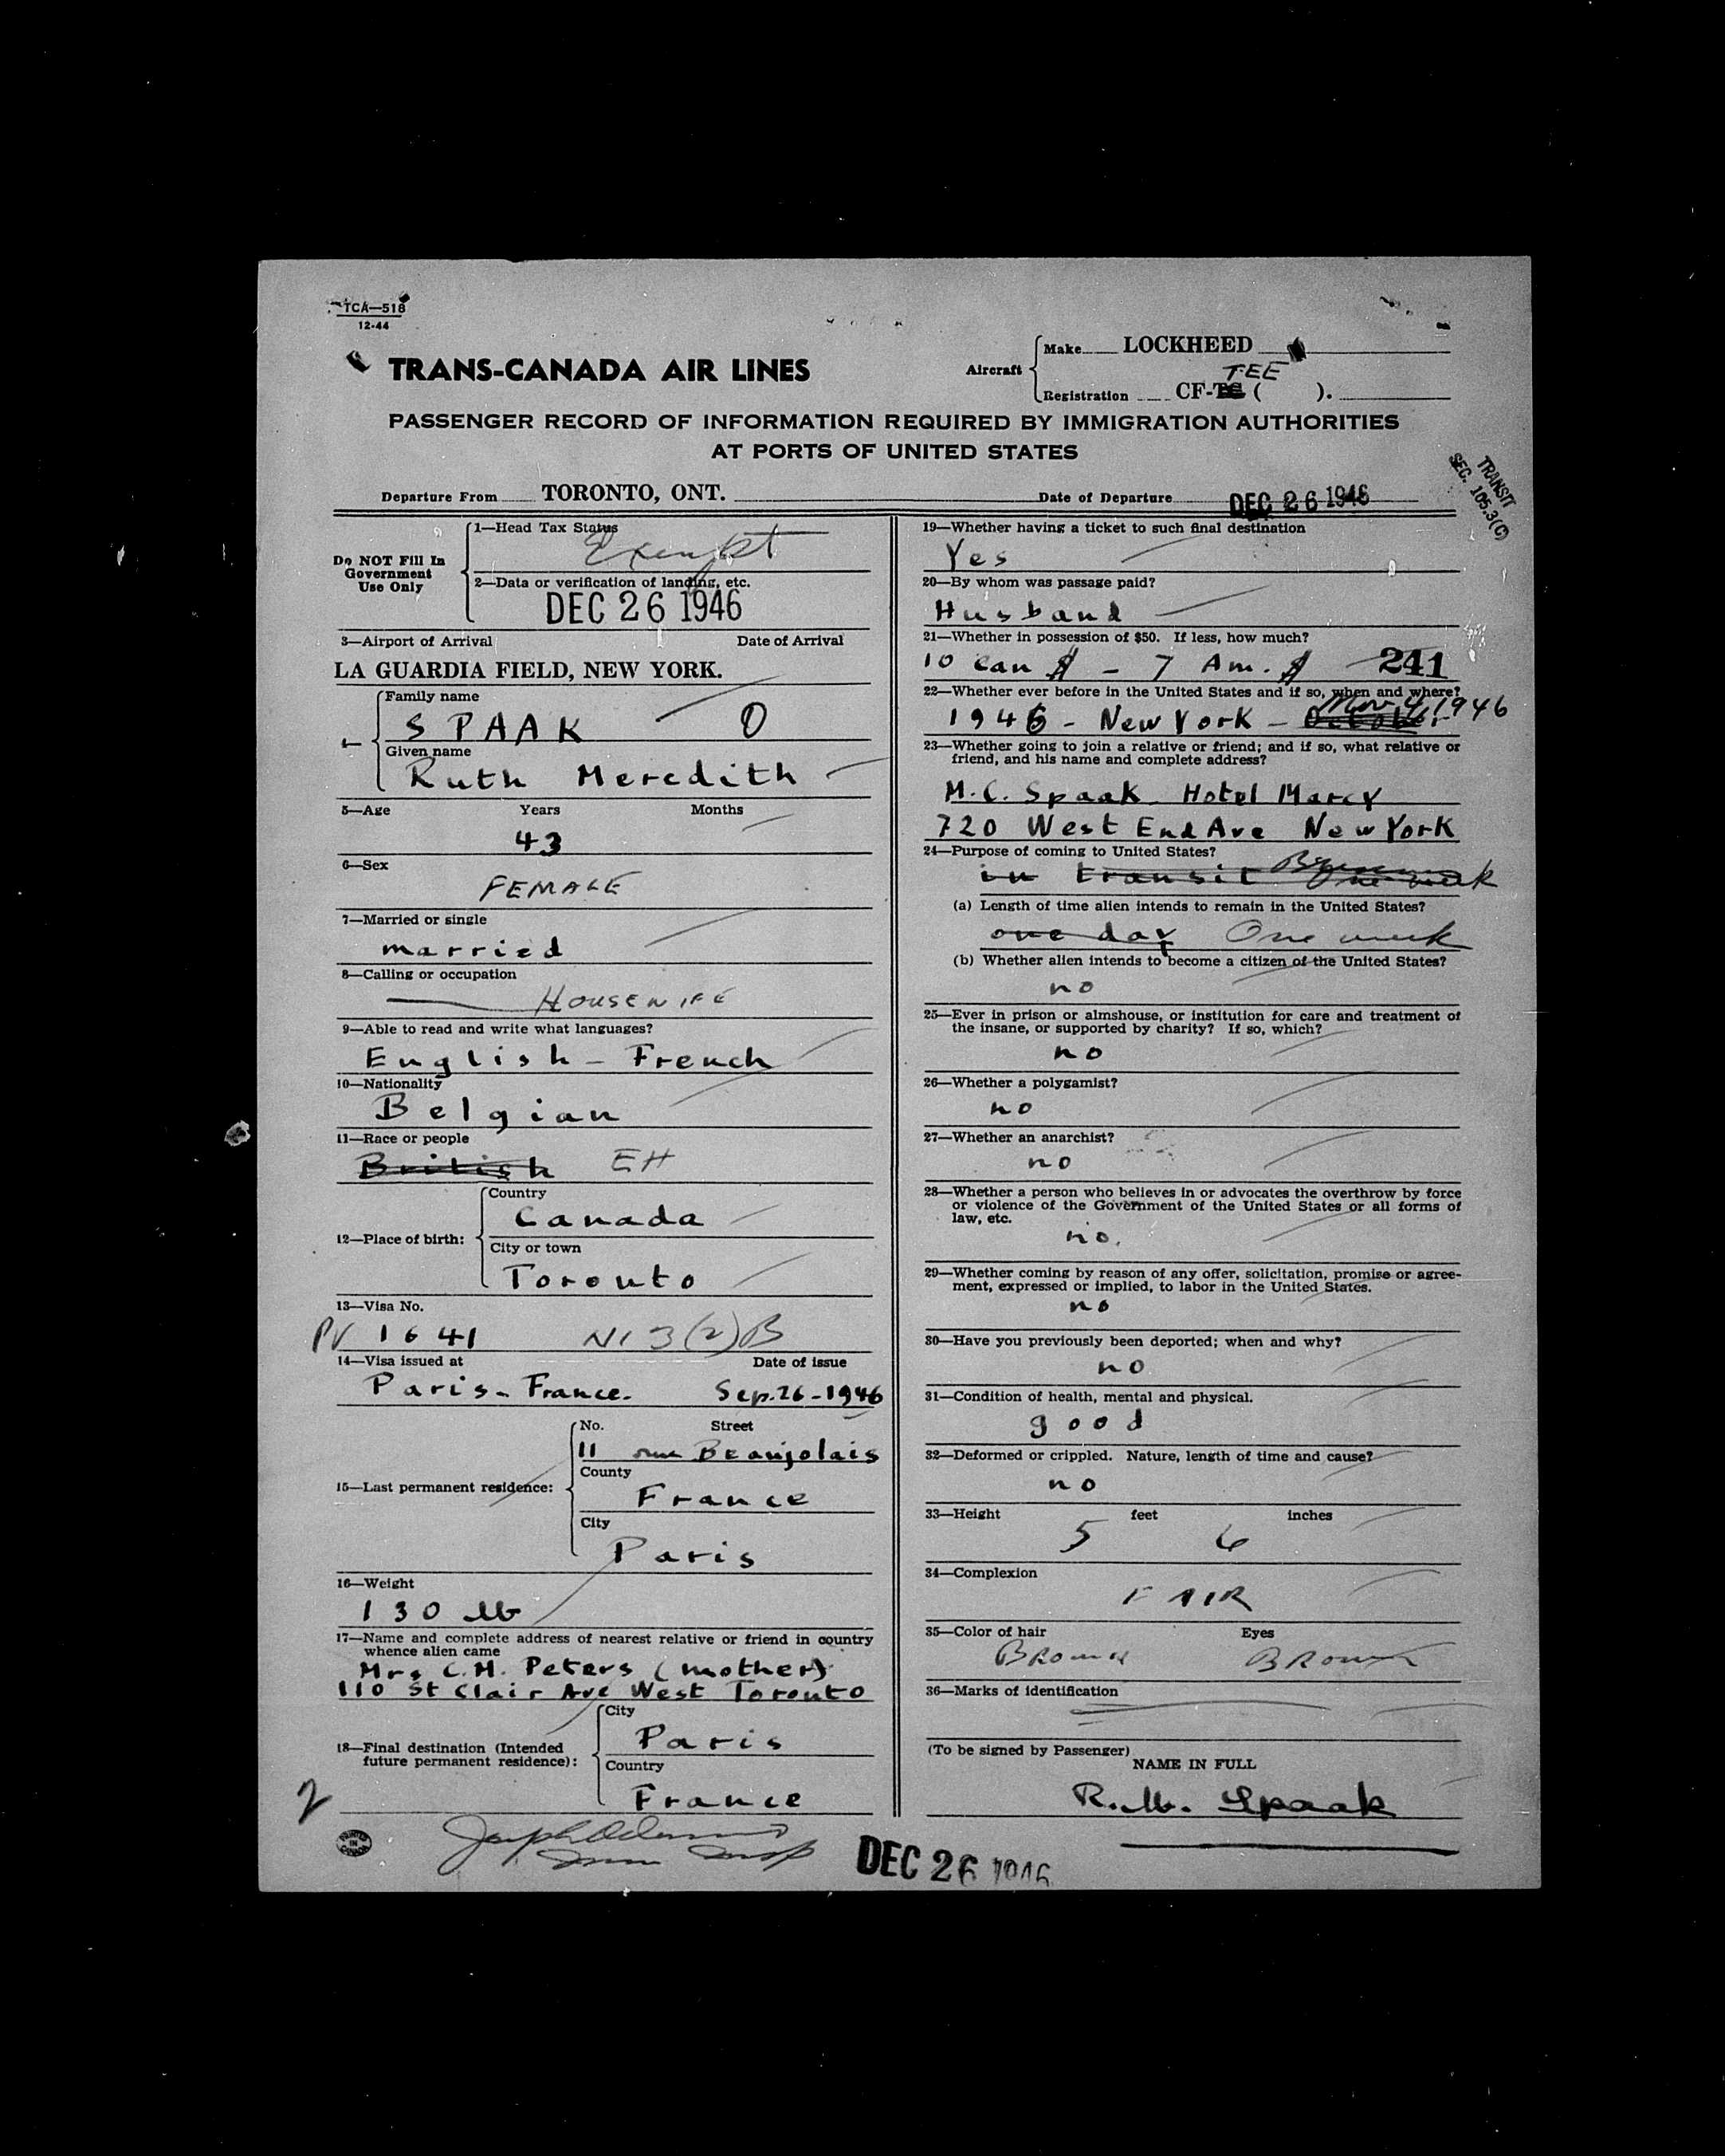 TCA—518
12-44
TRANS-CANADA AIR LINES
Aircraft
Make LOCKHEED
Registration CF-TC ( ).
TEE
PASSENGER RECORD OF INFORMATION REQUIRED BY IMMIGRATION AUTHORITIES
AT PORTS OF UNITED STATES
TRANSIT
SEC. 105.3(C)
Departure From TORONTO, ONT. Date of Departure DEC 26 1946
Do NOT Fill In
Government
Use Only
1—Head Tax Status
Exempt
2—Data or verification of landing, etc.
DEC 26 1946
3—Airport of Arrival Date of Arrival
LA GUARDIA FIELD, NEW YORK.
4—
Family name
SPAAK O
Given name
Ruth Meredith
5—Age Years Months
43
6—Sex
FEMALE
7—Married or single
married
8—Calling or occupation
HOUSEWIFE
9—Able to read and write what languages?
English - French
10—Nationality
Belgian
11—Race or people
British EH
12—Place of birth:
Country
Canada
City or town
Toronto
13—Visa No.
PV 1641 NI 3(2)B
14—Visa issued at Date of issue
Paris - France. Sep. 26 - 1946
15—Last permanent residence:
No. Street
11 rue Beaujolais
County
France
City
Paris
16—Weight
130 lb
17—Name and complete address of nearest relative or friend in country
whence alien came
Mrs C.M. Peters (mother)
110 St Clair Ave West Toronto
18—Final destination (Intended
future permanent residence):
City
Paris
Country
France
2
PRINTED
IN
CANADA
19—Whether having a ticket to such final destination
Yes
20—By whom was passage paid?
Husband
21—Whether in possession of $50. If less, how much?
10 Can $ - 7 Am. $ 241
22—Whether ever before in the United States and if so, when and where?
1946 - New York - October
Nov 4 1946
23—Whether going to join a relative or friend; and if so, what relative or
friend, and his name and complete address?
M.C. Spaak Hotel Marcy
720 West End Ave New York
24—Purpose of coming to United States?
in transit One week
(a) Length of time alien intends to remain in the United States?
one day One week
(b) Whether alien intends to become a citizen of the United States?
no
25—Ever in prison or almshouse, or institution for care and treatment of
the insane, or supported by charity? If so, which?
no
26—Whether a polygamist?
no
27—Whether an anarchist?
no
28—Whether a person who believes in or advocates the overthrow by force
or violence of the Government of the United States or all forms of
law, etc.
no.
29—Whether coming by reason of any offer, solicitation, promise or agree-
ment, expressed or implied, to labor in the United States.
no
30—Have you previously been deported; when and why?
no
31—Condition of health, mental and physical.
good
32—Deformed or crippled. Nature, length of time and cause?
no
33—Height feet inches
5 6
34—Complexion
FAIR
35—Color of hair Eyes
BROWN BROWN
36—Marks of identification
(To be signed by Passenger)
NAME IN FULL
R.M. Spaak
DEC 26 1946